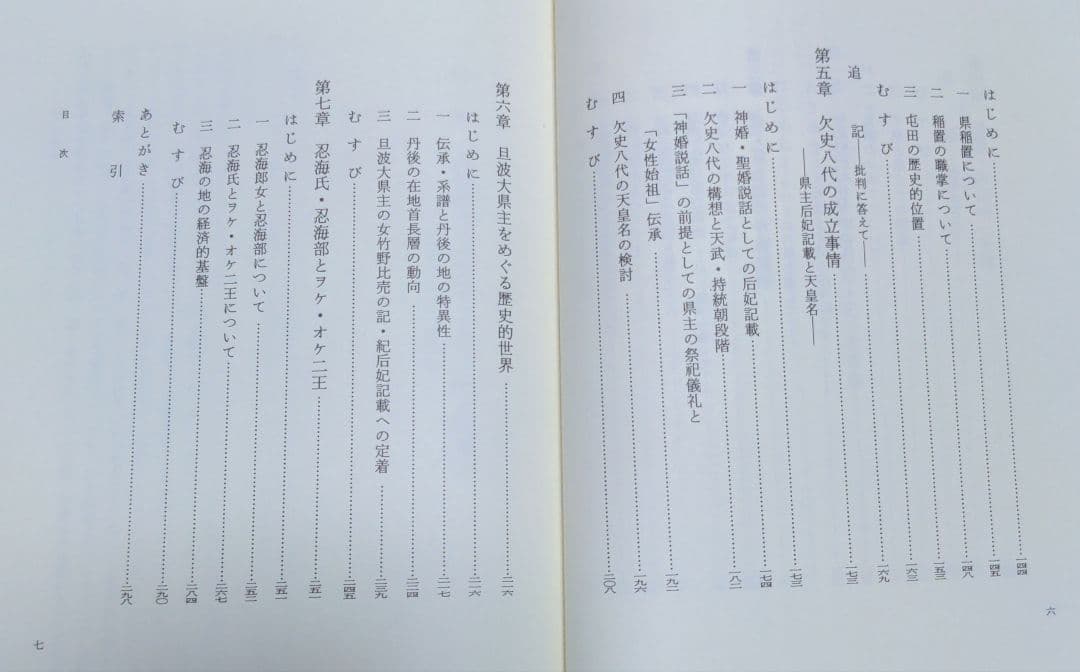 はじめに……一四四
一 県稲置について……一四五
二 稲置の職掌について……一四八
三 屯田の歴史的位置……一五三
むすび……一六三
追記──批判に答えて──……一六九
第五章 欠史八代の成立事情……一七三
──県主后妃記載と天皇名──
はじめに……一七三
一 神婚・聖婚説話としての后妃記載……一七四
二 欠史八代の構想と天武・持統朝段階……一八二
三 「神婚説話」の前提としての県主の祭祀儀礼と
「女性始祖」伝承……一九二
四 欠史八代の天皇名の検討……一九六
むすび……二〇八
六
第六章 旦波大県主をめぐる歴史的世界……二一六
はじめに……二一六
一 伝承・系譜と丹後の地の特異性……二一七
二 丹後の在地首長層の動向……二二四
三 旦波大県主の女竹野比売の記・紀后妃記載への定着……二三九
むすび……二四五
第七章 忍海氏・忍海部とヲケ・オケ二王……二五一
はじめに……二五一
一 忍海郎女と忍海部について……二五二
二 忍海氏とヲケ・オケ二王について……二六七
三 忍海の地の経済的基盤……二八四
むすび……二九〇
あとがき……二九八
索引
目次
七